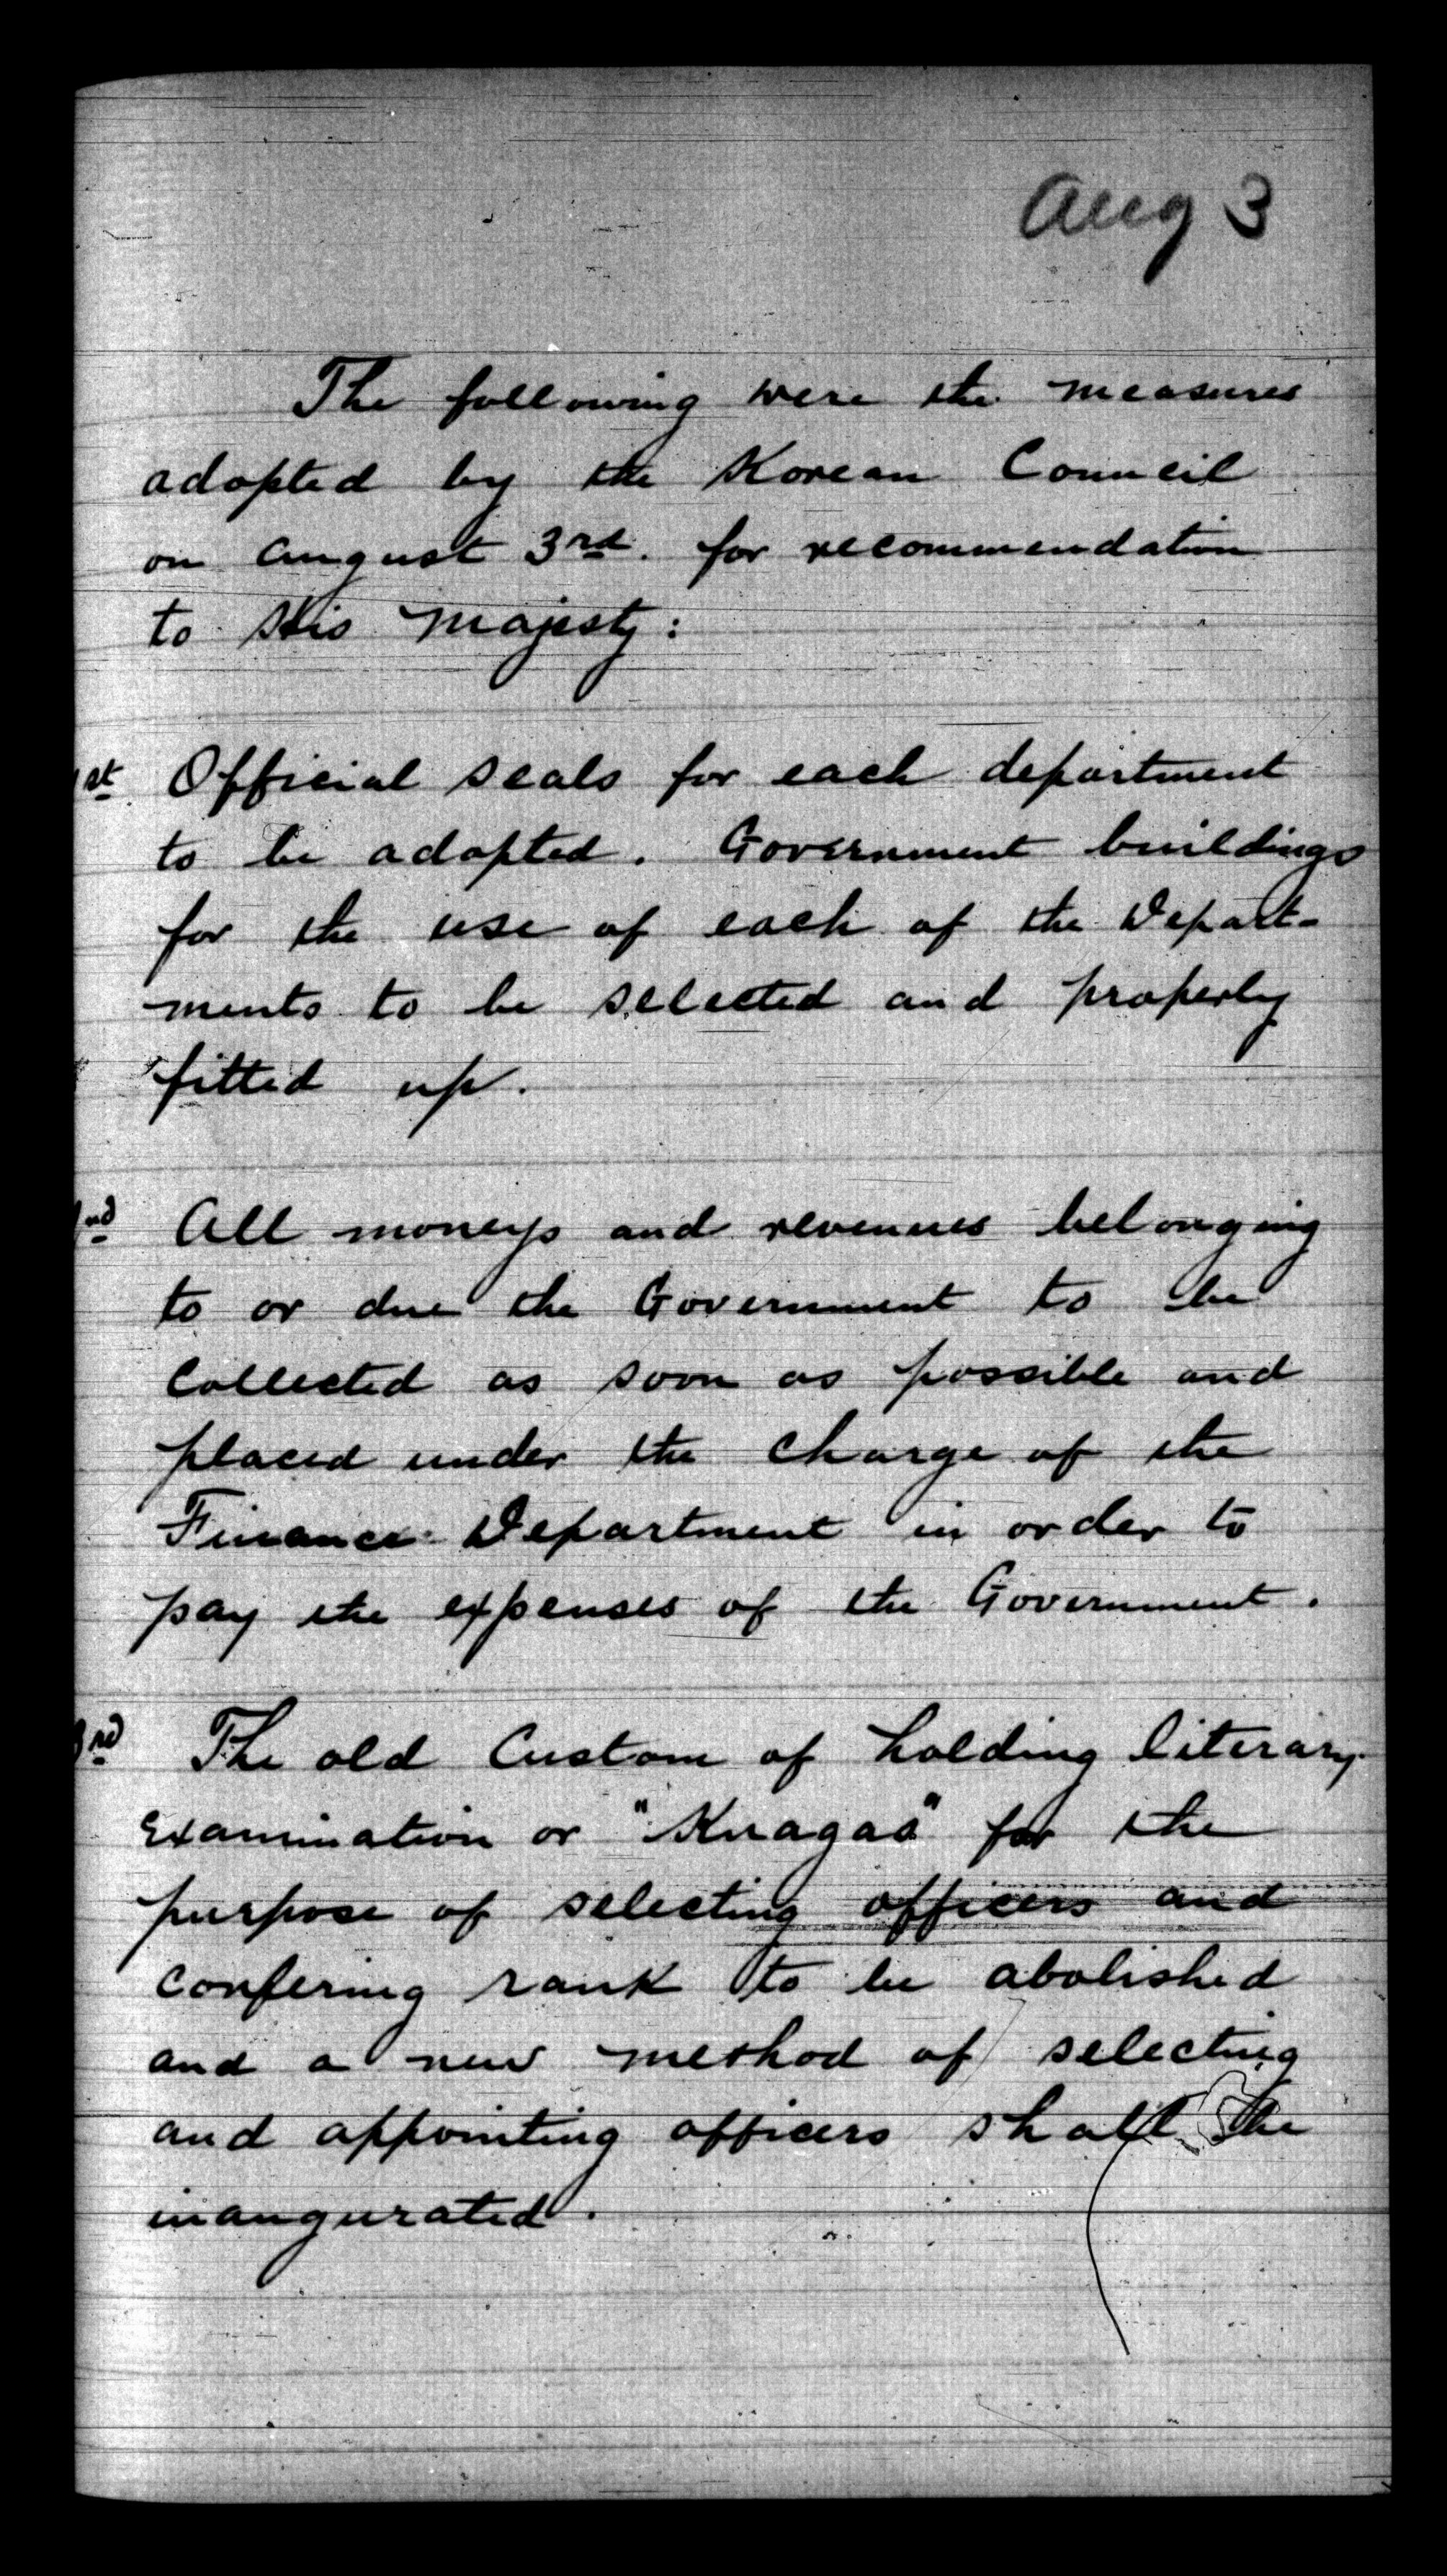 Aug 3
The following were the measures
adopted by the Korean Council
on August 3rd. for recommendation
to His Majesty:
1st Official seals for each department
to be adopted. Government buildings
for the use of each of the Depart-
ments to be selected and properly
fitted up.
nd All moneys and revenues belonging
to or due the Government to be
Collected as soon as possible and
placed under the charge of the
Finance Department in order to
pay the expenses of the Government.
3rd The old Custom of holding literary
Examination or "Kuagas" for the
purpose of selecting officers and
confering rank to be abolished
and a new method of selecting
and appointing officers shall be
inaugurated.